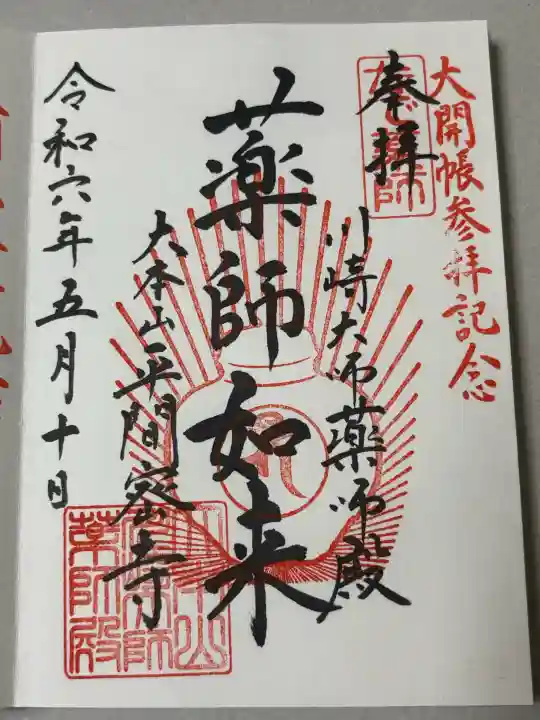 大開帳参拝記念
奉拝
川崎大師薬師殿
薬師如来
大本山平間密寺
令和六年五月十日
薬師殿